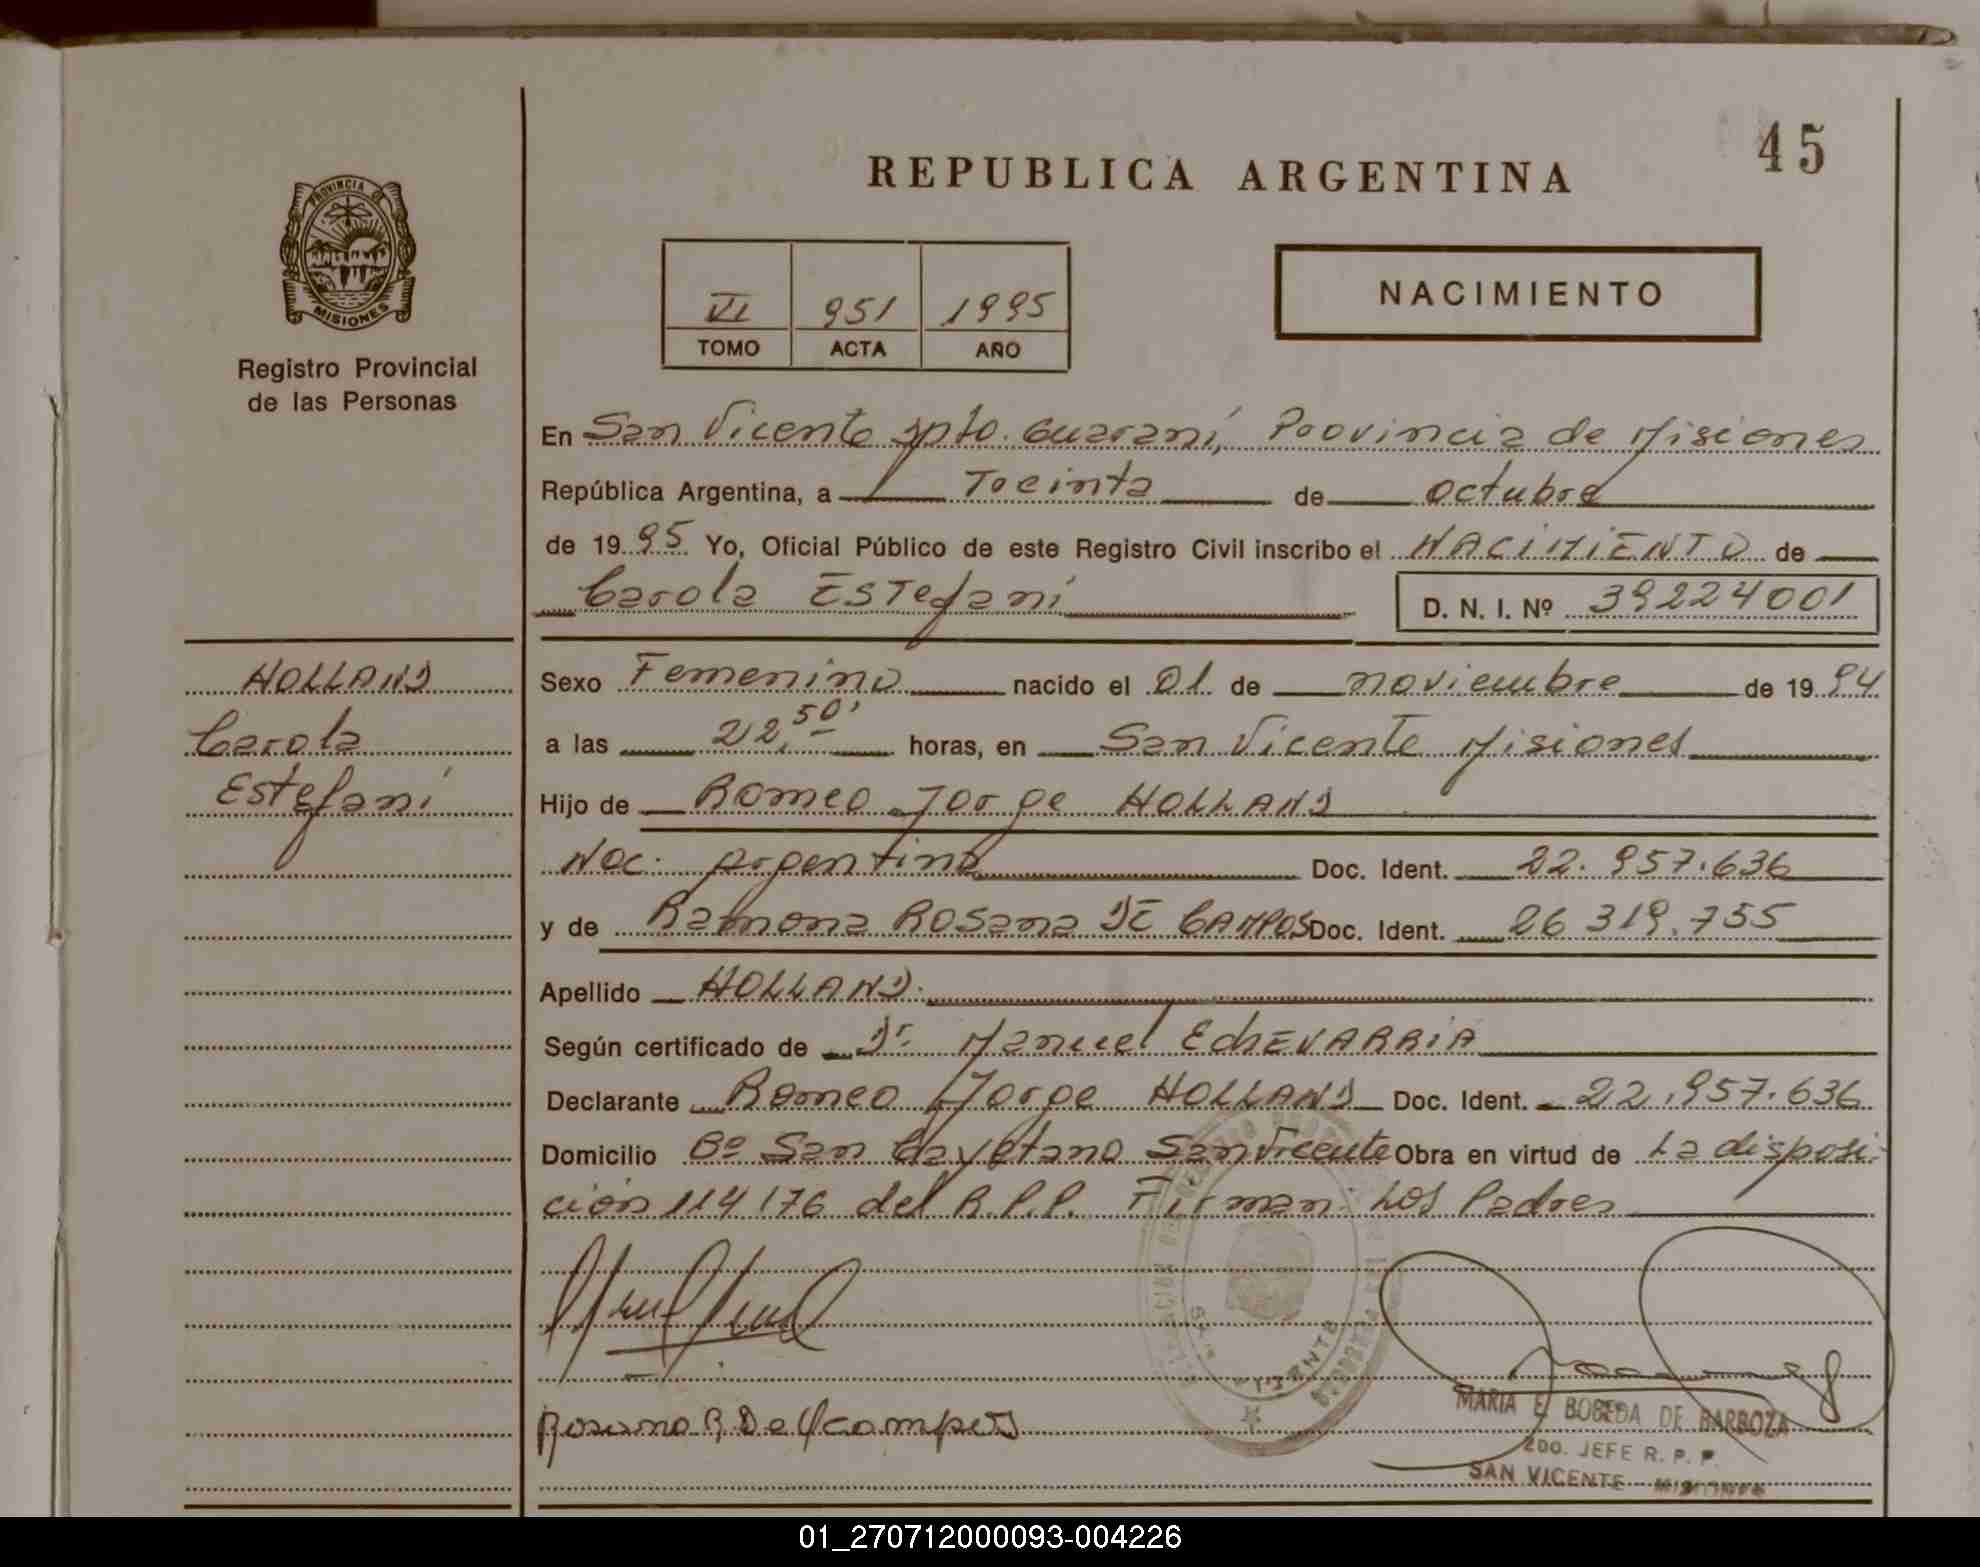 45
REPUBLICA ARGENTINA
PROVINCIA
MISIONES
Registro Provincial
de las Personas
VI 951 1995
TOMO ACTA AÑO
NACIMIENTO
En San Vicente Dpto. Guaraní, Provincia de Misiones
República Argentina, a Treinta de octubre
de 1995 Yo, Oficial Público de este Registro Civil inscribo el NACIMIENTO de
Carola ESTefaní D. N. I. Nº 39224001
HOLLAND
Carola
Estefaní
Sexo Femenino nacido el 01 de noviembre de 1994
a las 22,50' horas, en San Vicente Misiones
Hijo de Romeo Jorge HOLLAND
Nac. argentina Doc. Ident. 22.957.636
y de Ramona Rosana DE CAMPOS Doc. Ident. 26 319.755
Apellido HOLLAND.
Según certificado de Dr. Manuel EchEVARRIA
Declarante Romeo Jorge HOLLAND Doc. Ident. 22.957.636
Domicilio Bº San Cayetano San Vicente Obra en virtud de La disposi-
ción 114/76 del R.P.P. Firman: Los Padres
Rosana R. De Campos
MARIA E. BOBEDA DE BARBOZA
2DO. JEFE R. P. P.
SAN VICENTE MISIONES
01_270712000093-004226